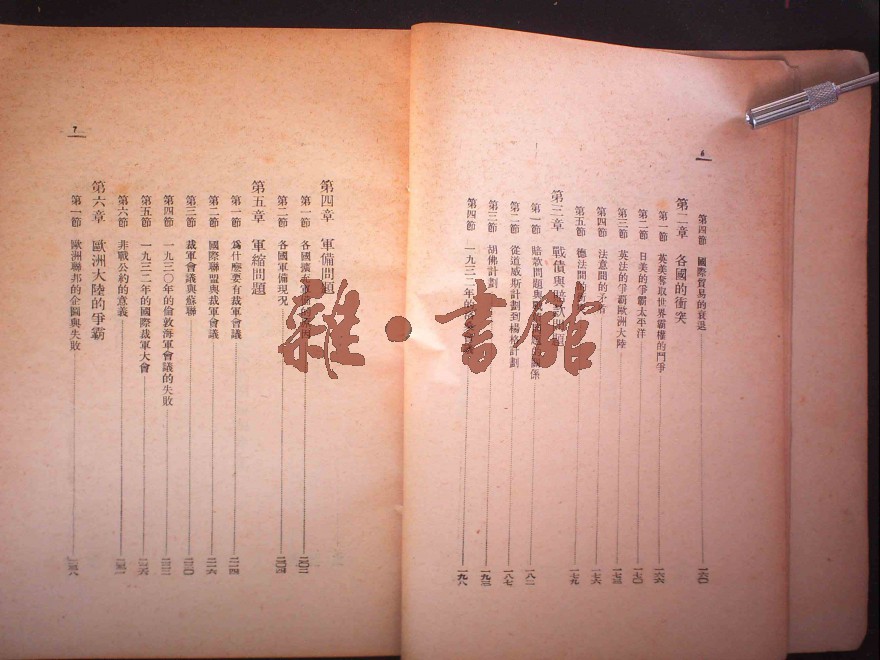 6
第四節 國際貿易的衰退 一六〇
第二章 各國的衝突
第一節 英美奪取世界霸權的鬥爭 一六六
第二節 日美的爭霸太平洋 一七〇
第三節 英法的爭霸歐洲大陸 一七三
第四節 法意間的矛盾 一七六
第五節 德法間的 一七九
第三章 戰債與賠款問題
第一節 賠款問題與戰債問題的關係 一八二
第二節 從道威斯計劃到楊格計劃 一八七
第三節 胡佛計劃 一九三
第四節 一九三二年的 會議 一九八
7
第四章 軍備問題
第一節 各國擴充軍備的
第二節 各國軍備現況 二〇四
第五章 軍縮問題
第一節 爲什麼要有裁軍會議 二一四
第二節 國際聯盟與裁軍會議 二一六
第三節 裁軍會議與蘇聯 二二〇
第四節 一九三〇年的倫敦海軍會議的失敗
第五節 一九三二年的國際裁軍大會
第六節 非戰公約的意義
第六章 歐洲大陸的爭霸
第一節 歐洲聯邦的企圖與失敗
雜·書館